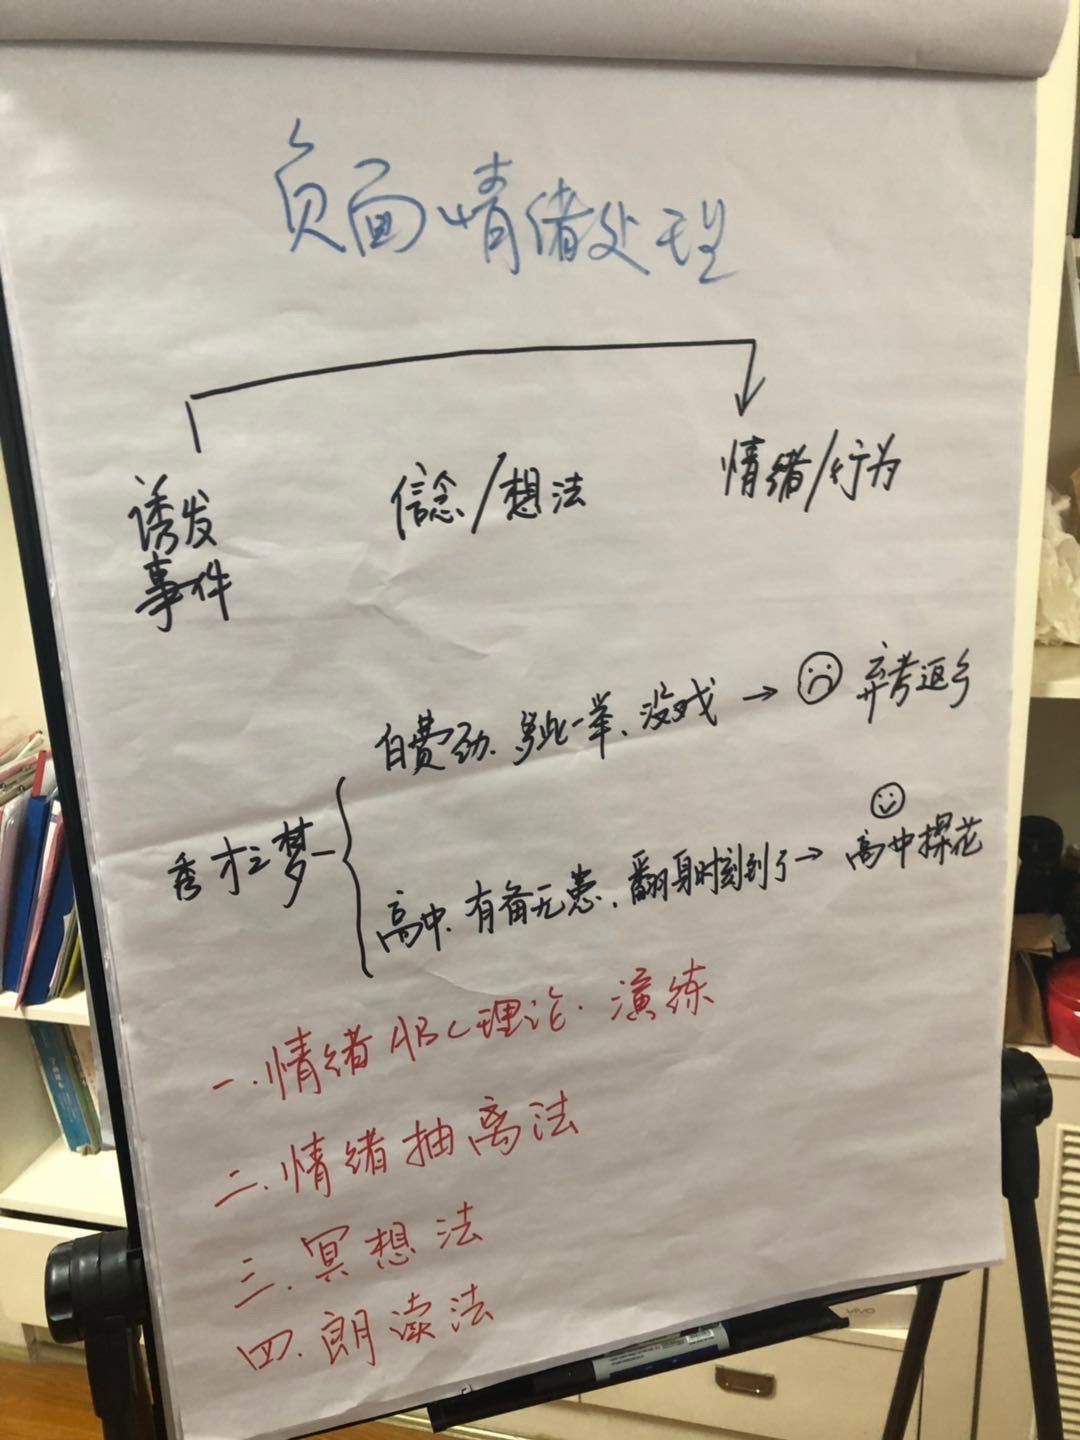 负面情绪处理
诱发
事件
信念/想法
情绪/行为
白费劲、多此一举、没戏 → 弃考返乡
秀才之梦
高中、有备无患、翻身时刻到了→ 高中探花
一.情绪ABC理论·演练
二.情绪抽离法
三.冥想法
四.朗读法
vivo